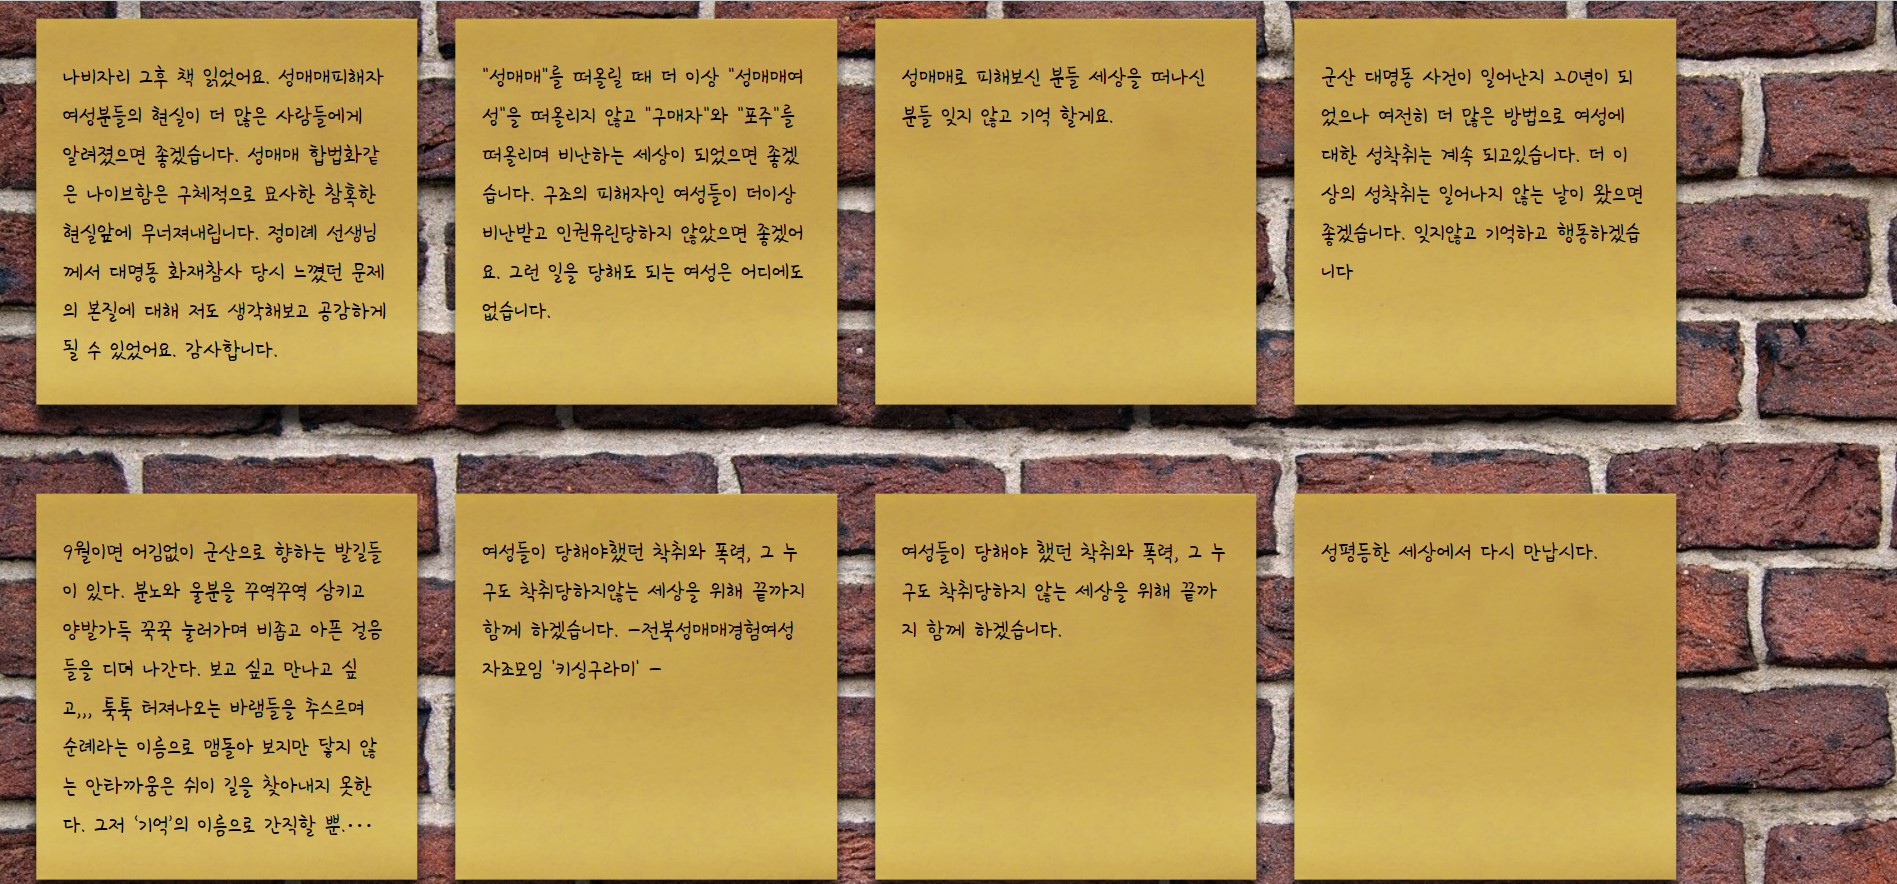 나비자리 그후 책 읽었어요. 성매매피해자
여성분들의 현실이 더 많은 사람들에게
알려졌으면 좋겠습니다. 성매매 합법화같
은 나이브함은 구체적으로 묘사한 참혹한
현실앞에 무너져내립니다. 정미례 선생님
께서 대명동 화재참사 당시 느꼈던 문제
의 본질에 대해 저도 생각해보고 공감하게
될 수 있었어요. 감사합니다.
"성매매"를 떠올릴 때 더 이상 "성매매여
성"을 떠올리지 않고 "구매자"와 "포주"를
떠올리며 비난하는 세상이 되었으면 좋겠
습니다. 구조의 피해자인 여성들이 더이상
비난받고 인권유린당하지 않았으면 좋겠어
요. 그런 일을 당해도 되는 여성은 어디에도
없습니다.
성매매로 피해보신 분들 세상을 떠나신
분들 잊지 않고 기억 할게요.
군산 대명동 사건이 일어난지 20년이 되
었으나 여전히 더 많은 방법으로 여성에
대한 성착취는 계속 되고있습니다. 더 이
상의 성착취는 일어나지 않는 날이 왔으면
좋겠습니다. 잊지않고 기억하고 행동하겠습
니다
9월이면 어김없이 군산으로 향하는 발길들
이 있다. 분노와 울분을 꾸역꾸역 삼키고
양발가득 꾹꾹 눌러가며 비좁고 아픈 걸음
들을 디뎌 나간다. 보고 싶고 만나고 싶
고,,, 툭툭 터져나오는 바램들을 추스르며
순례라는 이름으로 맴돌아 보지만 닿지 않
는 안타까움은 쉬이 길을 찾아내지 못한
다. 그저 ‘기억’의 이름으로 간직할 뿐.···
여성들이 당해야했던 착취와 폭력, 그 누
구도 착취당하지않는 세상을 위해 끝까지
함께 하겠습니다. -전북성매매경험여성
자조모임 '키싱구라미' -
여성들이 당해야 했던 착취와 폭력, 그 누
구도 착취당하지 않는 세상을 위해 끝까
지 함께 하겠습니다.
성평등한 세상에서 다시 만납시다.